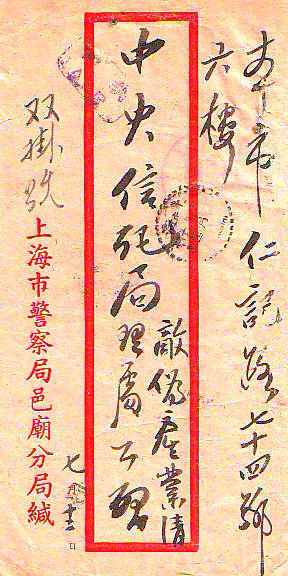 本市仁記路七十四號
六樓
中央信托局
敵偽產業清
理處公啓
双掛號
上海市警察局邑廟分局緘